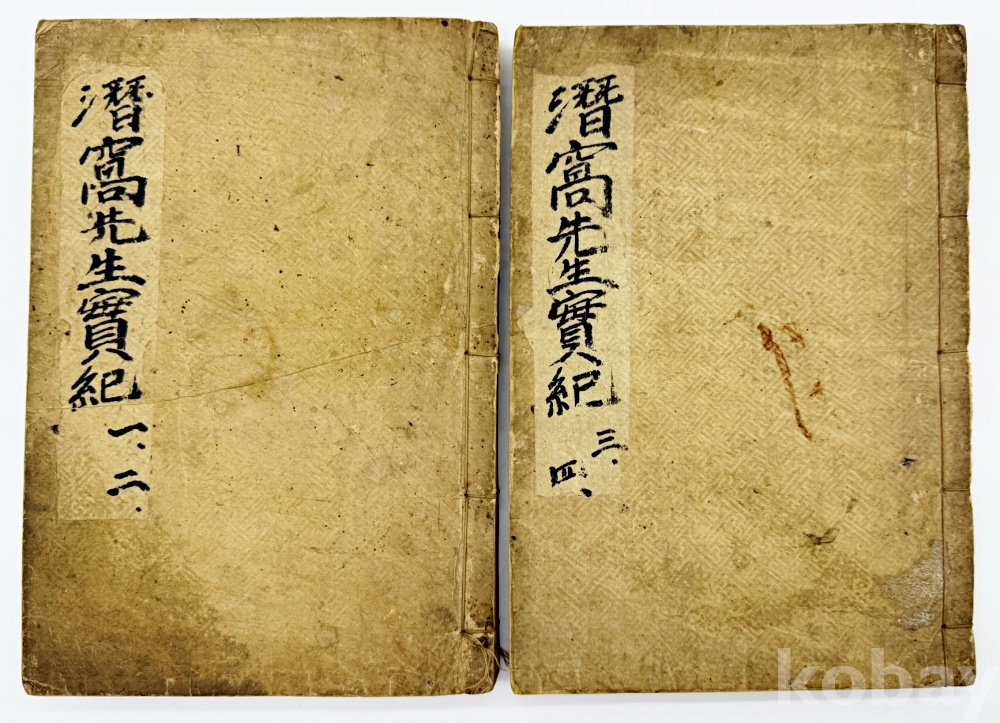 潛窩先生實紀 一、二、
潛窩先生實紀 三、四、
kobay